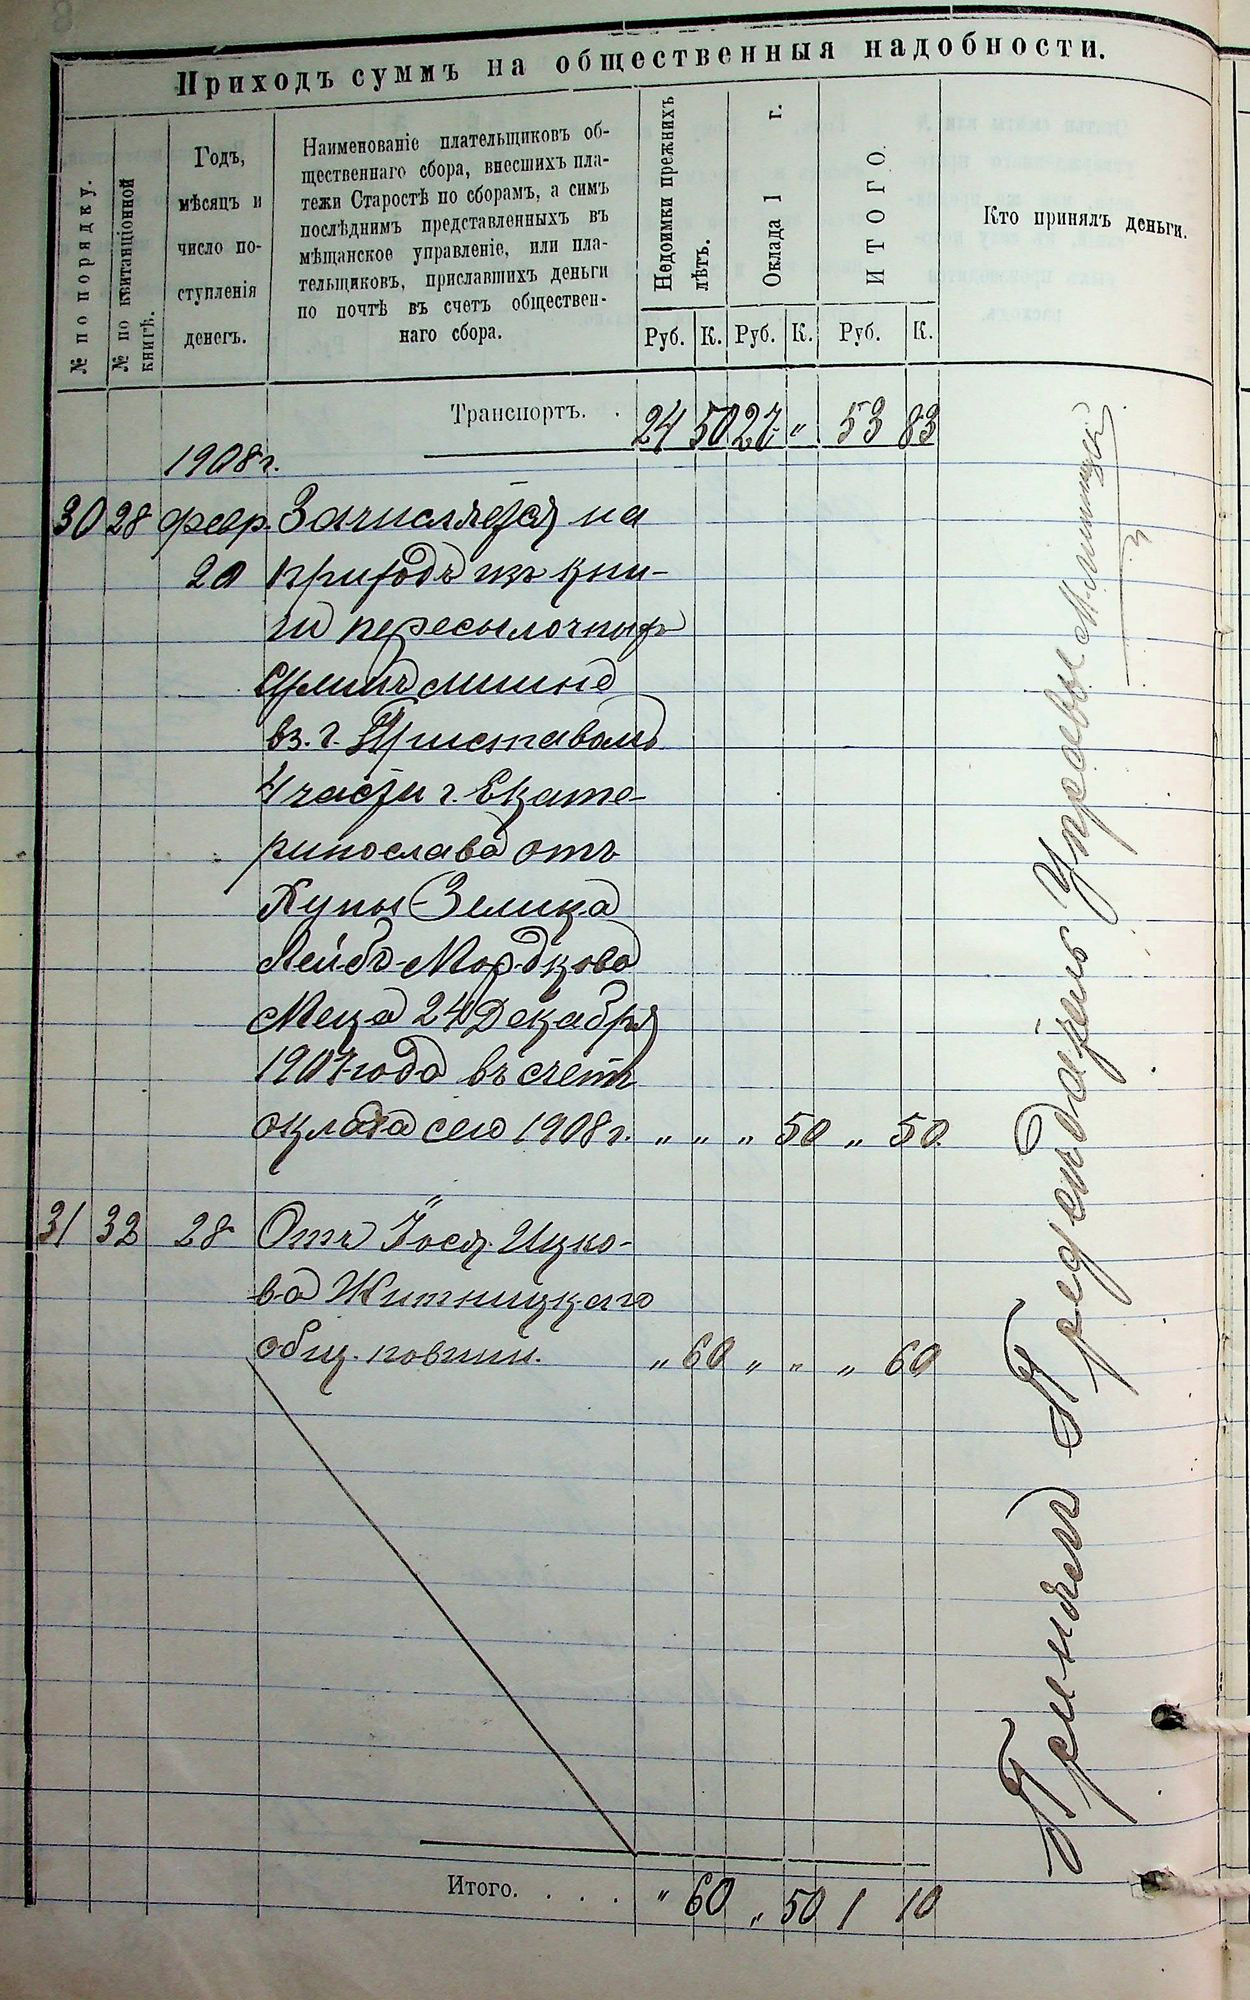 Приходъ суммъ на общественныя надобности.
№ по порядку.
№ по квитанціонной книгѣ.
Годъ,
мѣсяцъ и
число по-
ступленія
денегъ.
Наименованіе плательщиковъ об-
щественнаго сбора, внесшихъ пла-
тежи Старостѣ по сборамъ, а симъ
послѣднимъ представленныхъ въ
мѣщанское управленіе, или пла-
тельщиковъ, приславшихъ деньги
по почтѣ въ счетъ обществен-
наго сбора.
Недоимки прежнихъ лѣтъ.
Оклада 1 г.
ИТОГО.
Кто принялъ деньги.
Руб. К. Руб. К. Руб. К.
Транспортъ. . 24 50 27 „ 53 83
1908 г.
30 28 февр. Зачисляется на
20 приходъ изъ кни-
ги пересылочныхъ
суммъ
вз. г. Приставомъ
4 части г. Екате-
ринослава отъ
Пупы-Зелика
Лейбъ-Мордкова
Меца 24 Декабря
1907 года въ счетъ
оклада сего 1908 г. „ „ „ 50 „ 50
31 32 28 Отъ Іося Ицко-
ва Житницкаго
общ. повин. „ 60 „ „ „ 60
Итого. . . . „ 60 „ 50 1 10
Принялъ Предсѣдатель Управы